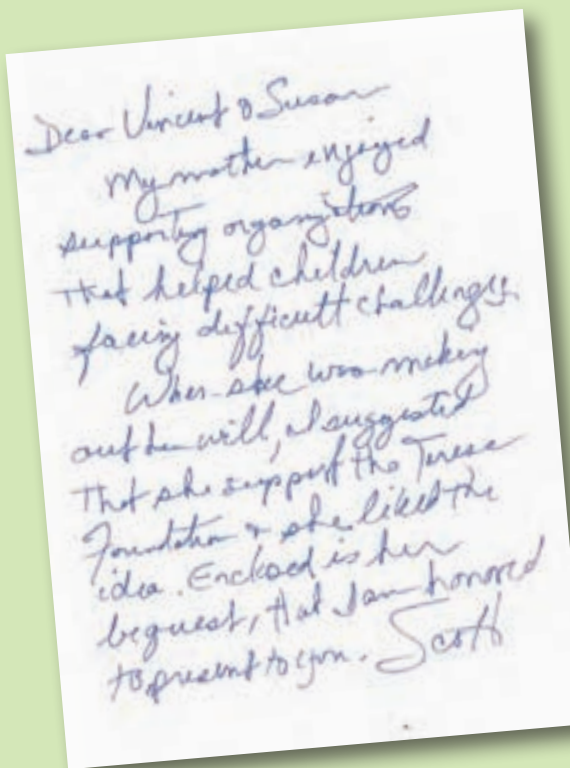 Dear Vincent & Susan
My mother enjoyed
supporting organizations
that helped children
facing difficult challenges.
When she was making
out her will, I suggested
that she support the Terese
Foundation & she liked the
idea. Enclosed is her
bequest, that I am honored
to present to you. Scott